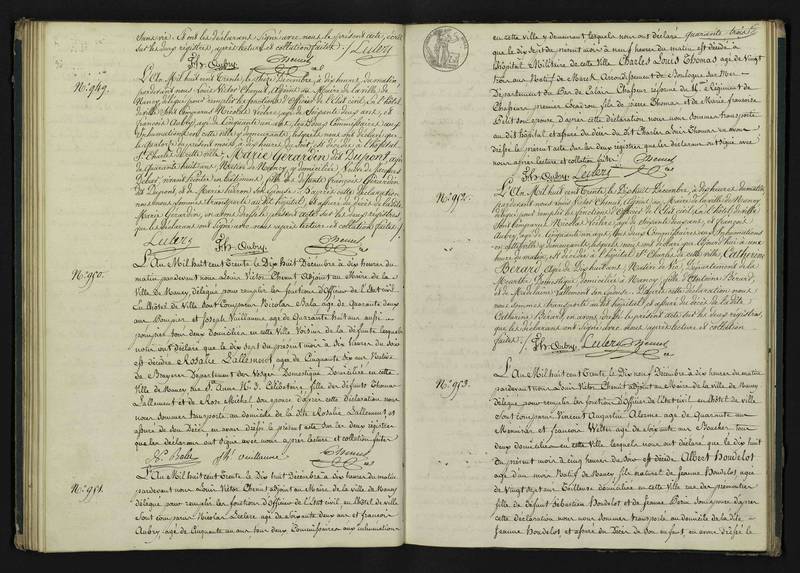 sans vie. Et ont les déclarans signé avec nous le présent acte, écrit
sur les deux registres, après lecture et collation faites./. Leclerc
fr. Aubry
Nº 949.
L'An Mil huit cent Trente, le dix huit Décembre, à dix heures du matin,
pardevant nous Louis Victor Chenut, Adjoint au Maire de la ville de
Nancy, délégué pour remplir les fonctions d'Officier de l'Etat civil, En l'hôtel de
ville sont comparus Nicolas Leclerc, agé de soixante deux ans, et
François Aubry, agé de Cinquante un ans, tous deux Commissaires aux
Inhumations en cette ville y demeurants, lesquels nous ont déclaré que
du présent mois à dix heures du soir, est décédée à l'hôpital
St. Charles de cette ville, Marie Gerardin dit Dupont, agée
de quarante huit ans, Native de Nancy, y domiciliée
fille de défunts François Gerardin
dit Dupont, et de Marie son Epouse. D'après cette déclaration
nous nous sommes transporté au dit hôpital, et assuré du décès de la dite
Marie Gerardin, en avons dressé le présent acte sur les deux registres
que les déclarans ont signé avec nous après lecture et collation faites./.
Leclerc fr. Aubry
Nº 950.
L'An Mil huit cent Trente le Dix huit Décembre à dix heures du
matin pardevant nous Louis Victor Chenut Adjoint au Maire de la
Ville de Nancy, délégué pour remplir les fonctions d'Officier de l'Etat civil.
En l'Hôtel de Ville sont Comparus Nicolas Bala agé de Quarante deux
ans Pompier et Joseph Vuillaume agé de Quarante huit ans aussi
pompier tous deux domiciliés en cette Ville Voisins de la défunte lesquels
nous ont déclaré que le dix sept du présent mois à dix heures du soir
est décédée Rosalie Lallement agée de Cinquante dix ans Native
de Bruyeres Département des Vosges Domestique Domiciliée en cette
Ville de Nancy rue Ste Anne Nº 3. Célibataire fille des défunts Thomas
Lallement et de Rose Michel son épouse d'après cette déclaration nous
nous sommes transporté au domicile de la dite Rosalie Lallement, et
assuré de son Décès en avons dressé le présent acte sur les deux registres
que les déclarans ont signé avec nous après lecture et collation faites
Bala Vuillaume
Nº 951.
L'An Mil huit cent Trente le Dix huit Décembre à dix heures du matin
pardevant nous Louis Victor Chenut adjoint au Maire de la Ville de Nancy
délégué pour remplir les fonctions d'Officier de l'Etat civil en l'hôtel de Ville
sont comparus Nicolas Leclerc agé de soixante deux ans et françois
Aubry, agé de Cinquante un ans tous deux Commissaires aux inhumations
en cette Ville y demeurant lesquels nous ont déclaré
que le dix sept du présent mois à neuf heures du matin est décédé à
l'Hôpital Militaire de cette Ville Charles Louis Thomas agé de Vingt
trois ans Natif de Marck Arrondissement de Boulogne sur Mer
Département du Pas de Calais Chasseur au Régiment de
Chasseurs premier Escadron fils de Pierre Thomas et de Marie françoise
Petit son épouse D'après cette déclaration nous nous sommes transporté
au dit hôpital et assuré du décès du dit Charles Louis Thomas en avons
dressé le présent acte sur les deux registres que les déclarans ont signé avec
nous après lecture et collation faites.
fr. Aubry Leclerc
Nº 952.
L'An Mil huit cent Trente, le Dix huit Décembre, à dix heures du matin,
pardevant nous Louis Victor Chenut, Adjoint au Maire de la ville de Nancy
délégué pour remplir les fonctions d'Officier de l'Etat civil, En l'hôtel de ville
sont Comparus Nicolas Leclerc, agé de soixante deux ans, et François
Aubry, agé de Cinquante un ans, tous deux Commissaires aux Inhumations
en cette ville y demeurants, lesquels nous ont déclaré que aujourd'hui à une
heure du matin, est décédée à l'hôpital St. Charles de cette ville, Catherine
Berard agée de Dix huit ans, Native de Vic, Département de la
Meurthe Domestique, domiciliée à Nancy, fille d'Antoine Berard,
et de Madelaine Lallement son épouse. D'après cette déclaration nous
nous sommes transporté au dit hôpital, et assuré du décès de la dite
Catherine Berard, en avons dressé le présent acte sur les deux registres,
que les déclarans ont signé avec nous après lecture et collation
faites./. fr. Aubry Leclerc
Nº 953.
L'An Mil huit cent Trente, le Dix Neuf Décembre à dix heures du matin
pardevant nous Louis Victor Chenut adjoint au Maire de la Ville de Nancy
délégué pour remplir les fonctions d'Officier de l'Etat civil en l'hôtel de Ville
sont comparus Vincent Augustin agé de Quarante ans
Menuisier et francois Welter agé de soixante ans Boucher tous
deux domiciliés en cette Ville lesquels nous ont déclaré que le dix huit
du présent mois à cinq heures du soir est décédé Albert Houdelot
agé d'un mois Natif de Nancy fils naturel de Jeanne Houdelot agée
de Vingt sept ans Tailleuse domiciliée en cette Ville rue
fille de défunt Sébastien Houdelot et de Jeanne son épouse d'après
cette déclaration nous nous sommes transporté au domicile de la dite
Jeanne Houdelot et assuré du Décès de son enfant en avons dressé le